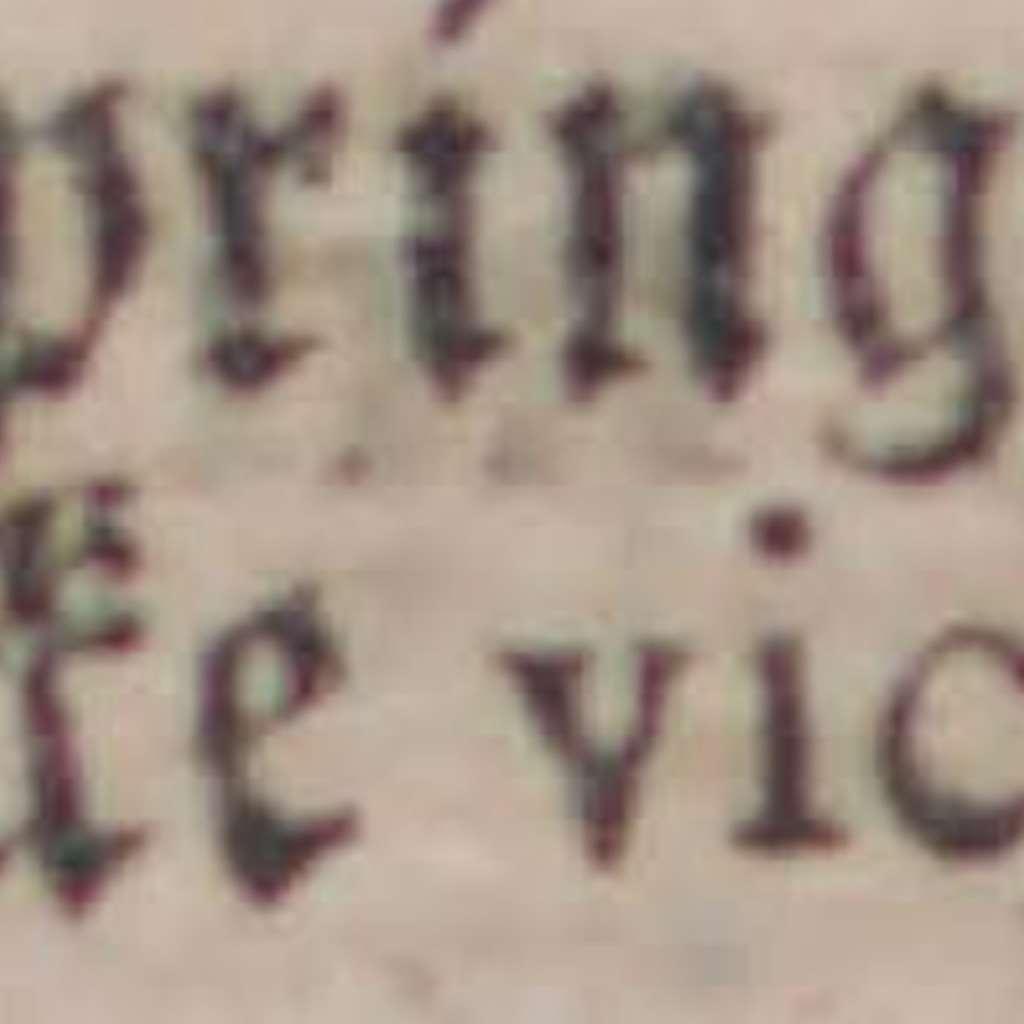 pring
te vic